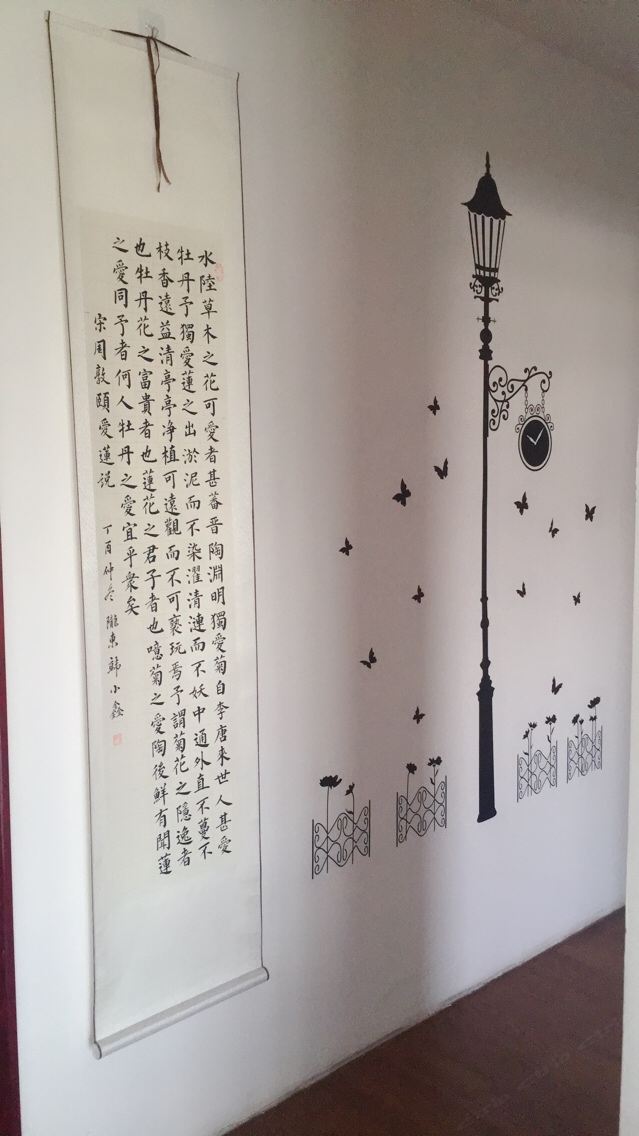 水陸草木之花可愛者甚蕃晉陶淵明獨愛菊自李唐来世人甚愛
牡丹予獨愛蓮之出淤泥而不染濯清漣而不妖中通外直不蔓不
枝香遠益清亭亭净植可遠觀而不可褻玩焉予謂菊花之隱逸者
也牡丹花之富貴者也蓮花之君子者也噫菊之愛陶後鮮有聞蓮
之愛同予者何人牡丹之愛宜乎衆矣
宋周敦頤愛蓮説 丁酉仲冬 隴東韓小鑫